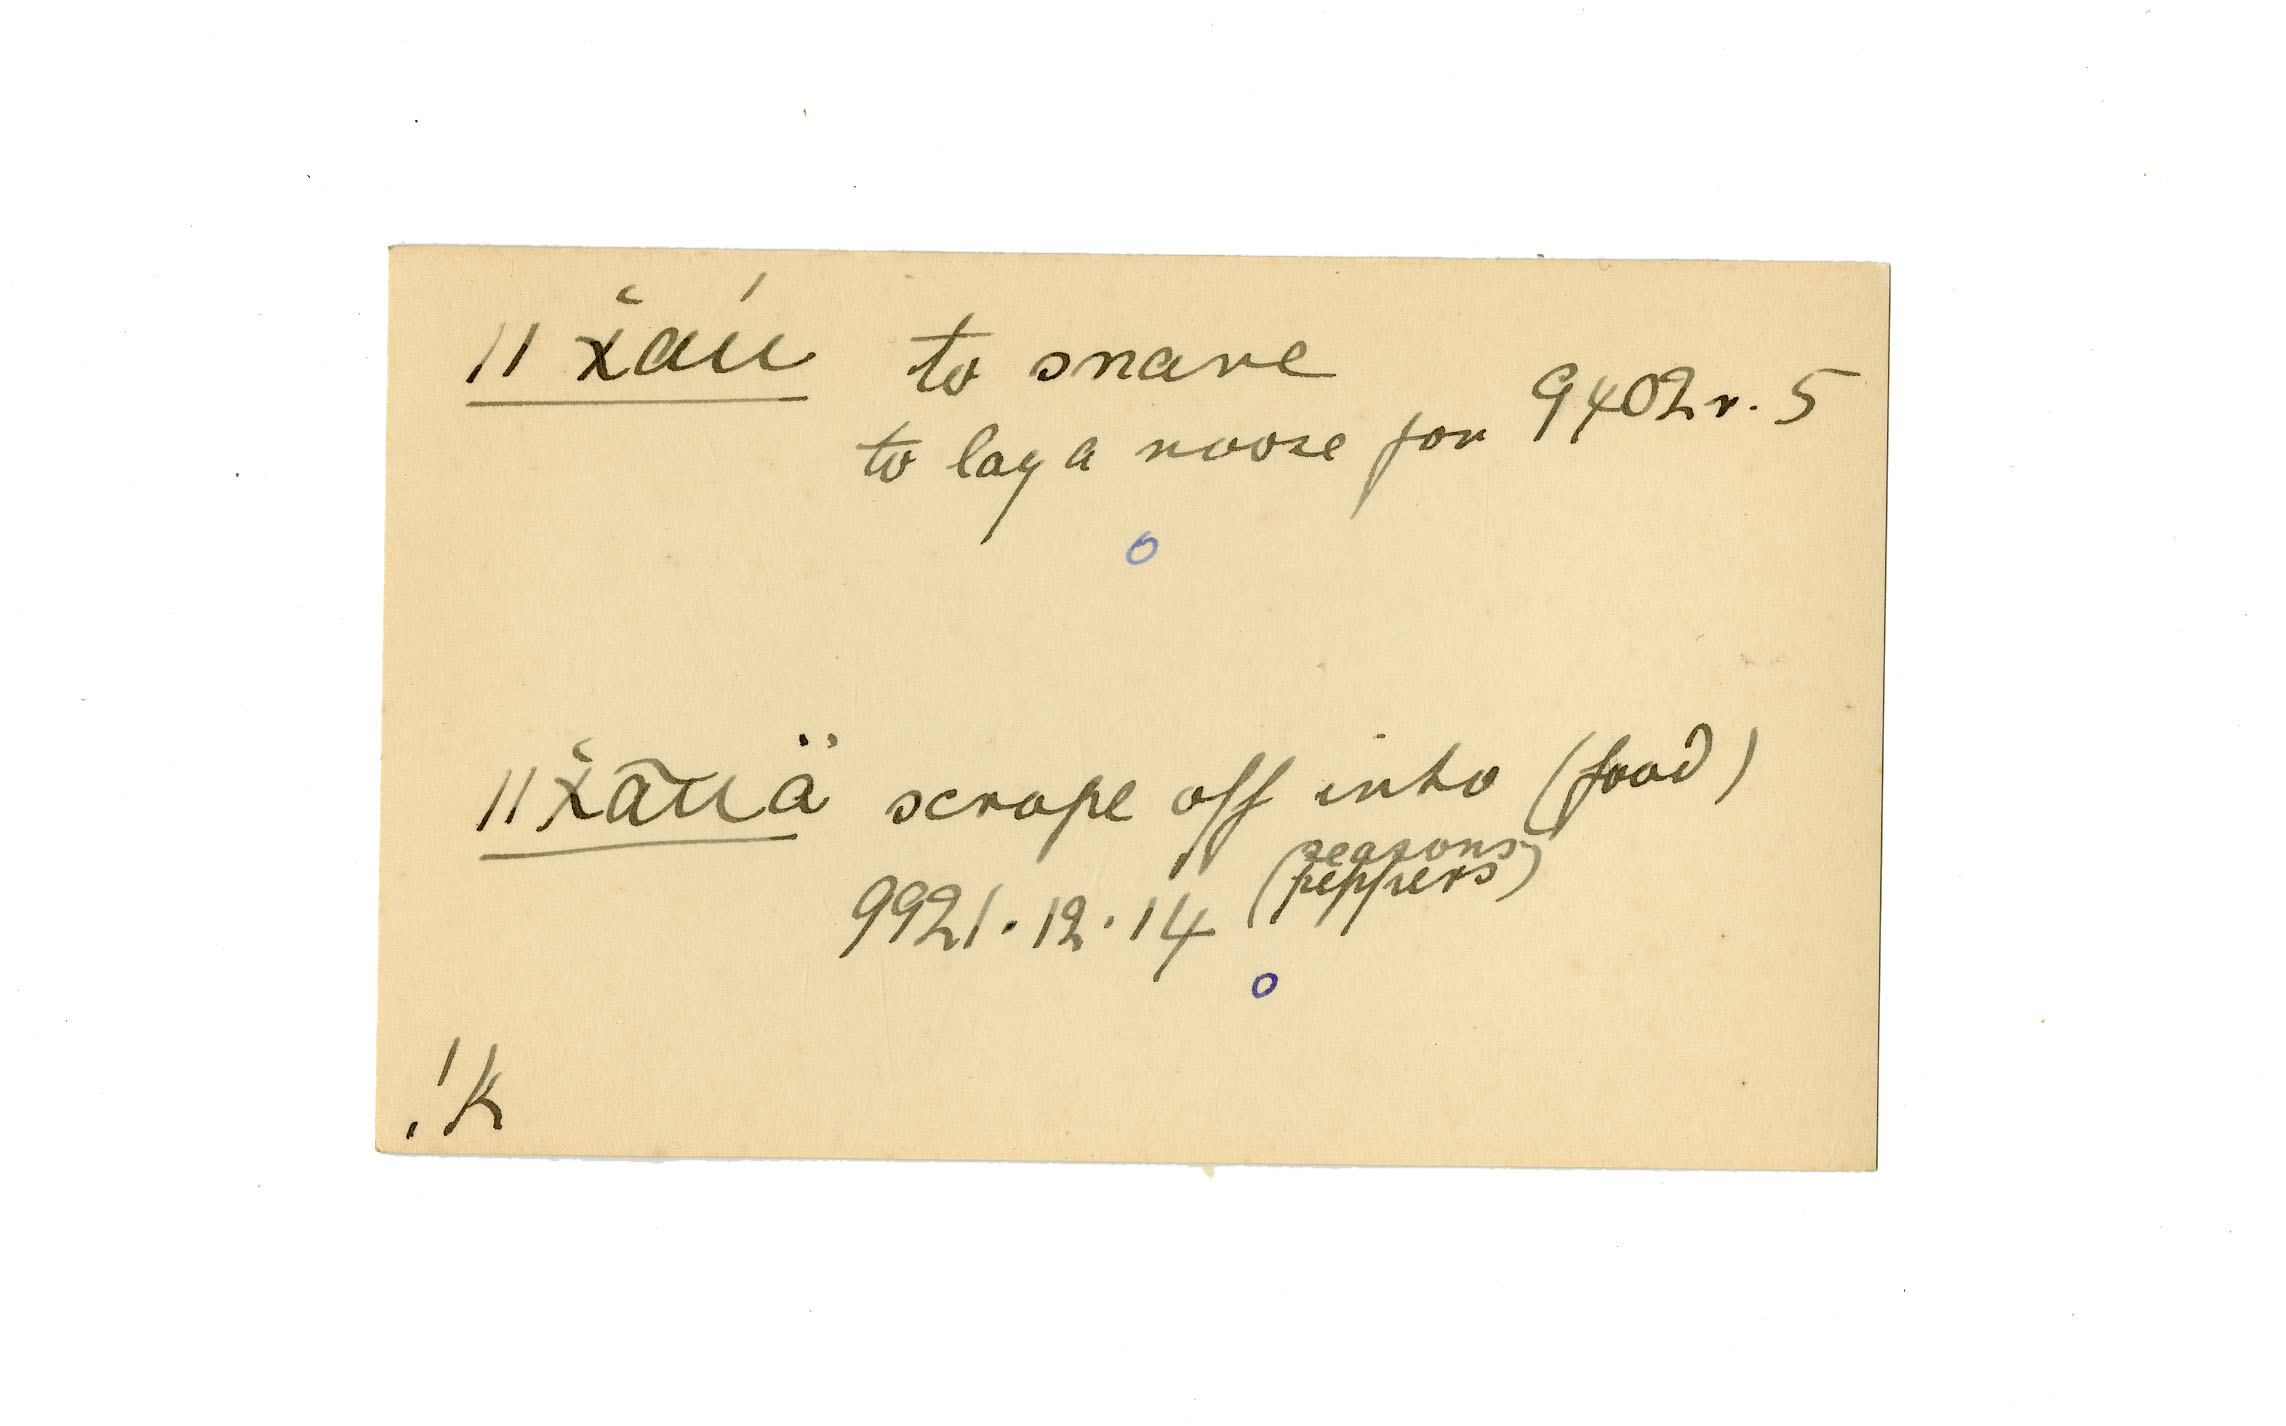 ǁx̌aú to snare
to lay a noose for 9402 r. 5
o
ǁx̌ãũä scrape off into (food)
9921. 12. 14 (seasons, peppers)
o
!k